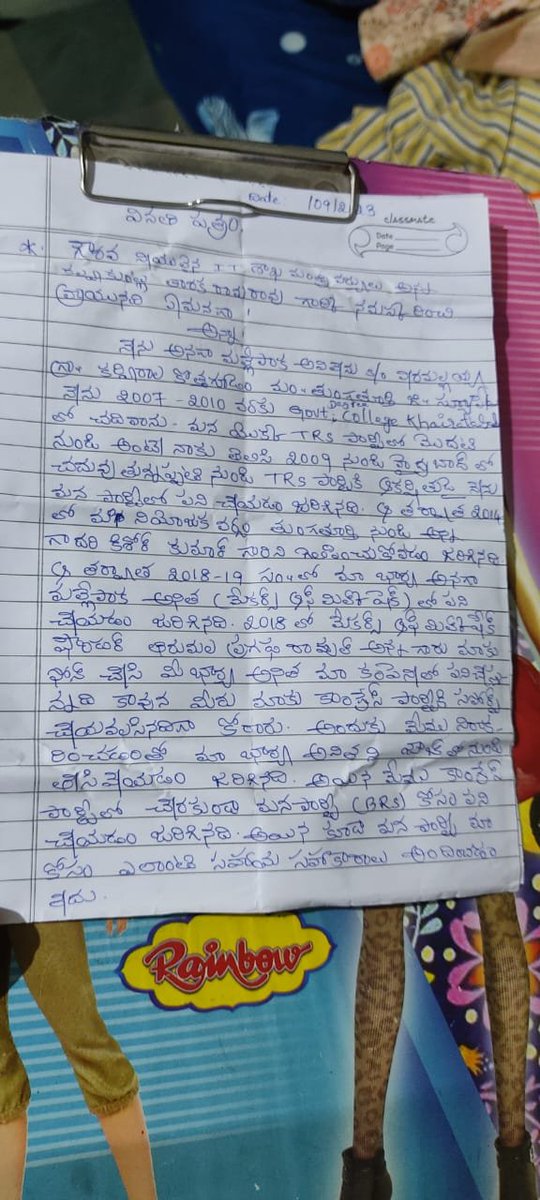 Date: /09/2023
classmate
Date
Page
వినతి పత్రం
*. గౌరవ నీయులైన IT శాఖ మంత్రి వర్యులు అన్న
కల్వకుంట్ల తారక రామారావు గారికి నమస్కరించి
వ్రాయునది ఏమనగా!
అన్నా
నేను అనగా మల్లెపాక అవిశాను s/o వీరమల్లయ్య
గ్రా. కర్విరాల కొత్తగూడెం మం. తుంగతుర్తి జి. సూర్యాపేట
నేను 2007 - 2010 వరకు Govt. Degree College Khairatabad
లో చదివాను. మన యొక్క TRS పార్టీలో మొదటి
నుండి అంటే నాకు తెలిసి 2009 నుండి హైద్రాబాద్ లో
చదువుతున్నప్పటి నుండి TRS పార్టీకి ఆకర్షితుడై నేను
మన పార్టీలో పని చేయడం జరిగినది. ఆ తర్వాత 2014
లో మా నియోజక వర్గం తుంగతుర్తి నుండి అన్న
గాదరి కిశోర్ కుమార్ గారిని గెలిపించుకోవడం జరిగినది
ఆ తర్వాత 2018-19 సం.లో మా భార్య అనగా
మల్లెపాక అనిత (మేకర్స్ ఆఫ్ మిల్క్ షేక్) లో పని
చేయడం జరిగినది. 2018 లో మేకర్స్ ఆఫ్ మిల్క్ షేక్
ఫౌండర్ రాహుల్ అన్న గారు మాకు
ఫోన్ చేసి మీ భార్య అనిత మా కంపెనీలో పనిచేస్తు
న్నది కావున మీరు మాకు కాంగ్రేస్ పార్టీకి సపోర్ట్
చేయవలసినదిగా కోరారు. అందుకు మేము నిరాక
రించడంతో మా భార్య అనితని జాబ్ లో నుండి
తీసి వేయడం జరిగినది. అయిన మేము కాంగ్రేస్
పార్టీలో చేరకుండా మన పార్టీ (BRS) కోసం పని
చేయడం జరిగినది. అయిన కూడా మన పార్టీ మా
కోసం ఎలాంటి సహాయ సహకారాలు అందించడం
లేదు.
Rainbow